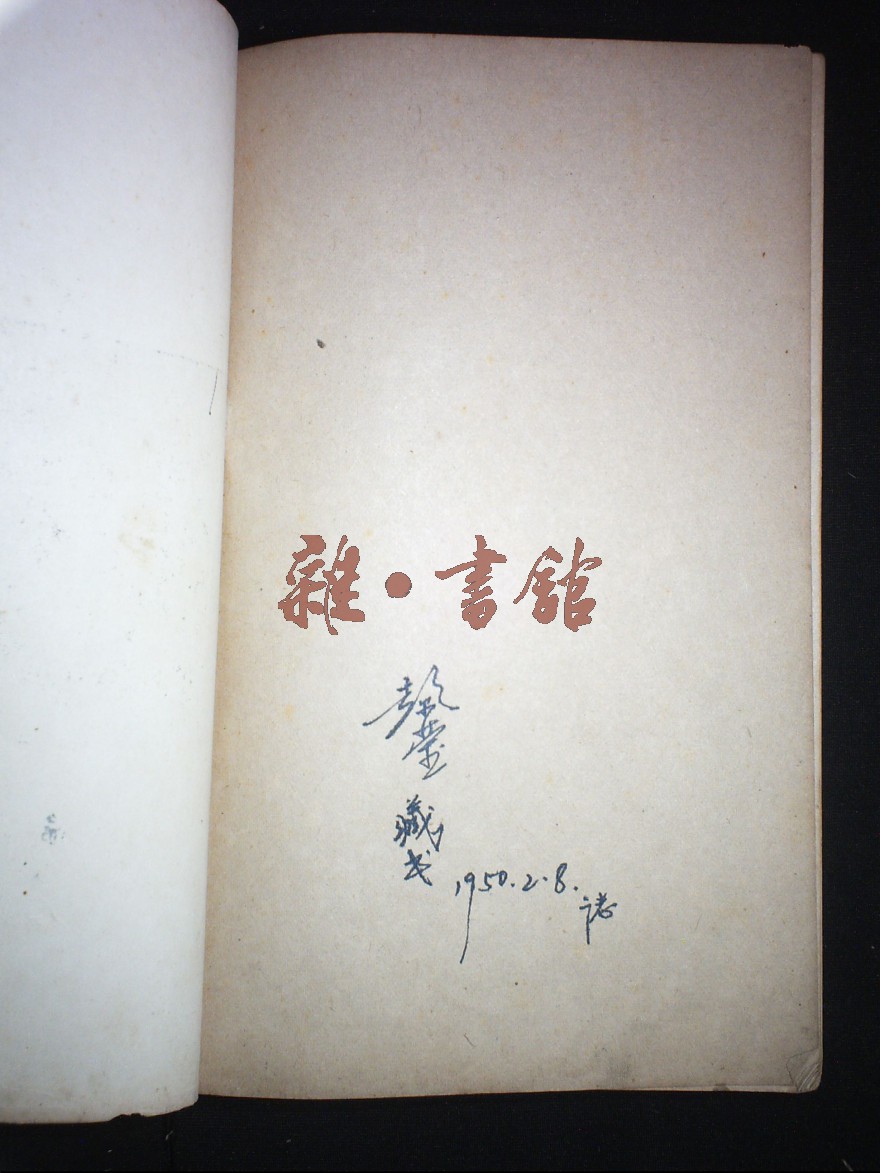 雜·書館
藏書
1950.2.8.
誌